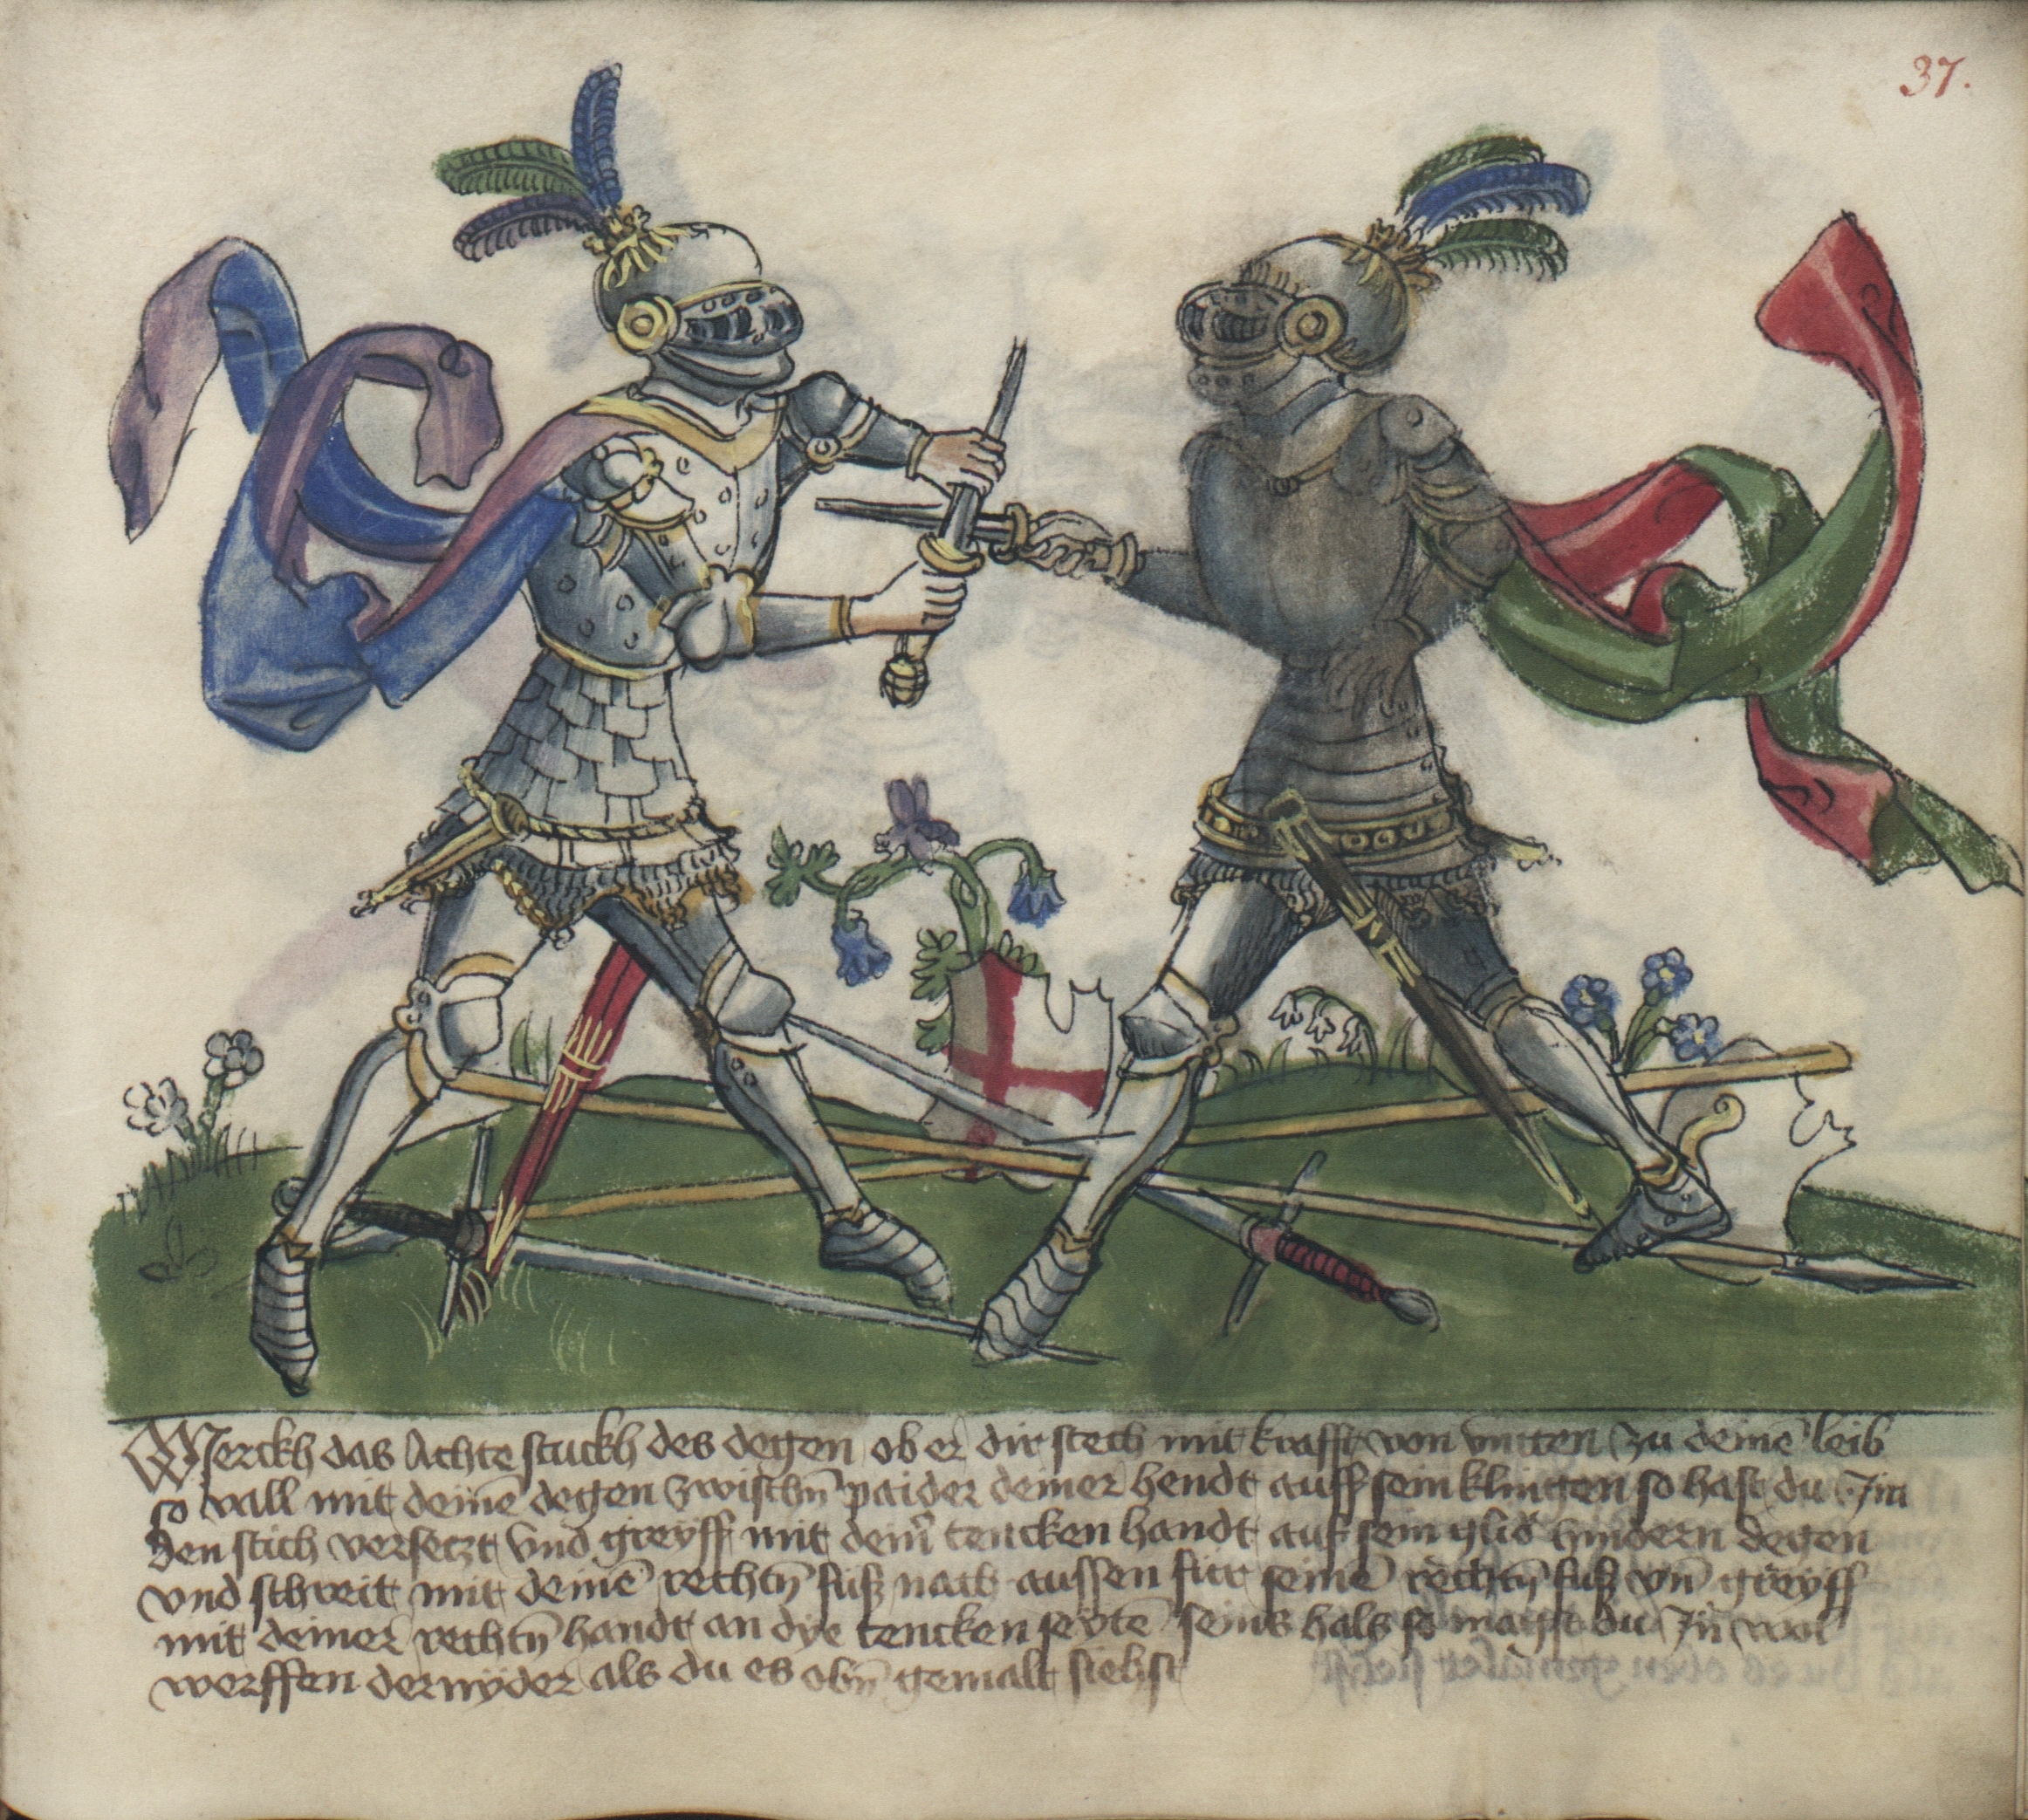 37.
Merckh das Achte stuckh des degen ob er dir stech mit krafft von vntten zu deinē leib
so vall mit deinē degen zwischn̄ paider deiner hendt auff sein klingen so hast du Im
den stich versetzt vnd greyff mit dein̄ tencken handt auf sein glid hindern degen
vnd schreit mit deinē rechtn̄ fuß nach aussen für seinē rechtn̄ fuß vn̄ greyff
mit deiner rechtn̄ handt an dye tencken seytē seins hals so magst du In̄ wol
werffen dernyder als du es obn̄ gemalt siehst